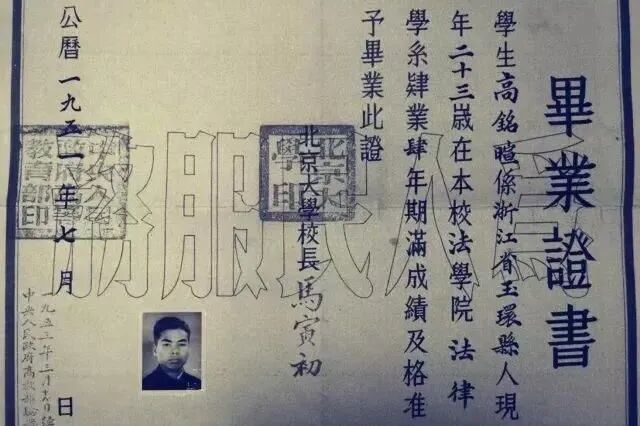 畢業證書
學生高銘暄係浙江省玉環縣人現
年二十三歲在本校法學院法律
學系肄業肆年期滿成績及格准
予畢業此證
北京大學校長馬寅初
北京大
學印
公曆一九五一年七月 日
教育部印
爲人民服務
中央人民政府高教部